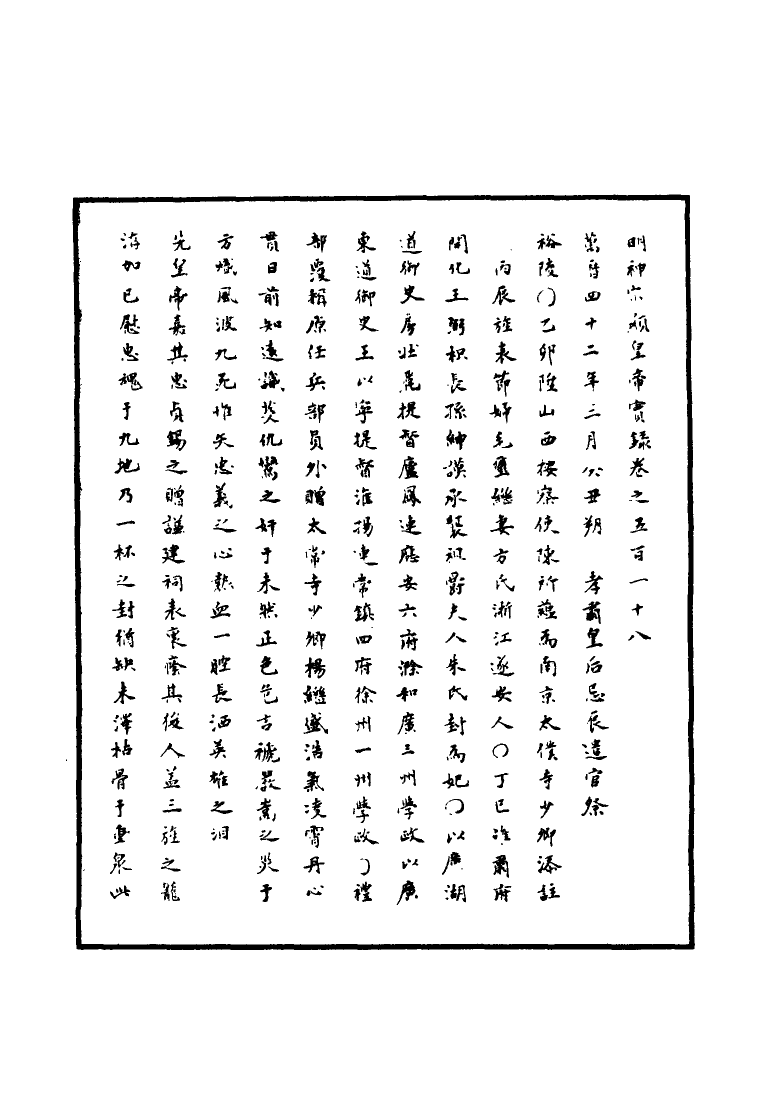 明神宗顯皇帝實錄卷之五百一十八
萬曆四十二年三月癸丑朔　孝肅皇后忌辰遣官祭
裕陵○乙卯陞山西按察使陳所蘊為南京太僕寺少卿添註
丙辰旌表節婦毛璽繼妻方氏浙江遂安人○丁巳準肅府
開化王弼柹長孫紳謨承襲祖爵夫人朱氏封為妃○以廣湖
道御史房壯麗提督廬鳳連應安六府滁和廣三州學政以廣
東道御史王以寧提督淮揚連常鎮四府徐州一州學政○禮
部覆輯原任兵部員外贈太常寺少卿楊繼盛浩氣凌霄丹心
貫日前知遠識熒仇鸞之奸于未然正色危言褫嚴嵩之炎于
方熾風波九死惟矢忠義之心熱血一腔長洒英雄之泪
先皇帝嘉其忠貞錫之贈謚建祠表衷廕其後人盖三旌之寵
洊加已慰忠魂于九地乃一杯之封猶缺未澤枯骨于重泉此